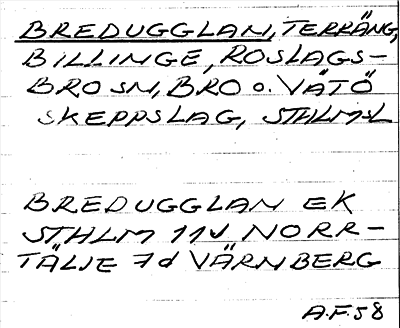 BREDUGGLAN, TERRÄNG,
BILLINGE, ROSLAGS-
BRO SN, BRO O. VÄTÖ
SKEPPSLAG, STHLM-L
BREDUGGLAN EK
STHLM 11J NORR-
TÄLJE 7d VÄRNBERG
A.F. 58